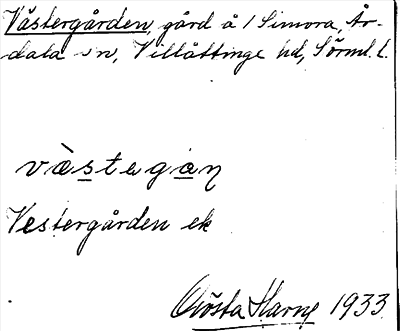 Västergården, gård å 1 Simora, År-
dala sn, Villåttinge hd, Sörml. l.
vàstegan
Vestergården ek
Gösta Harne 1933